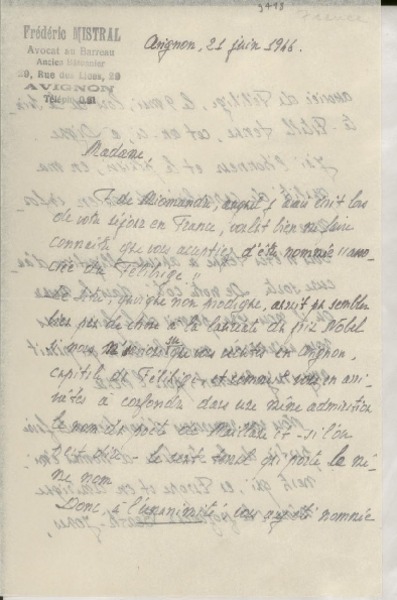 Frédéric MISTRAL
Avocat au Barreau
Ancien Bâtonnier
20, Rue des Lices, 20
AVIGNON
Téléph.
Avignon, 21 juin 1946.
Madame,
F. de Miomandre, auquel j'avais écrit lors
de votre séjour en France, voulut bien me faire
connaître que vous accepteriez d'être nommée "asso-
ciée du Félibrige".
Ce titre, quoique non prodigué, aurait pu sembler
bien peu de chose à la lauréate du prix Nobel
si nous n'avions su que vous récitâtes en Avignon,
capitale du Félibrige, et comment vous en
à confondre dans une même admiration
le nom du poète de Maillane et - si l'on
- le vent qui porte le mê-
me nom.
Donc, à l'unanimité, vous avez été nommée